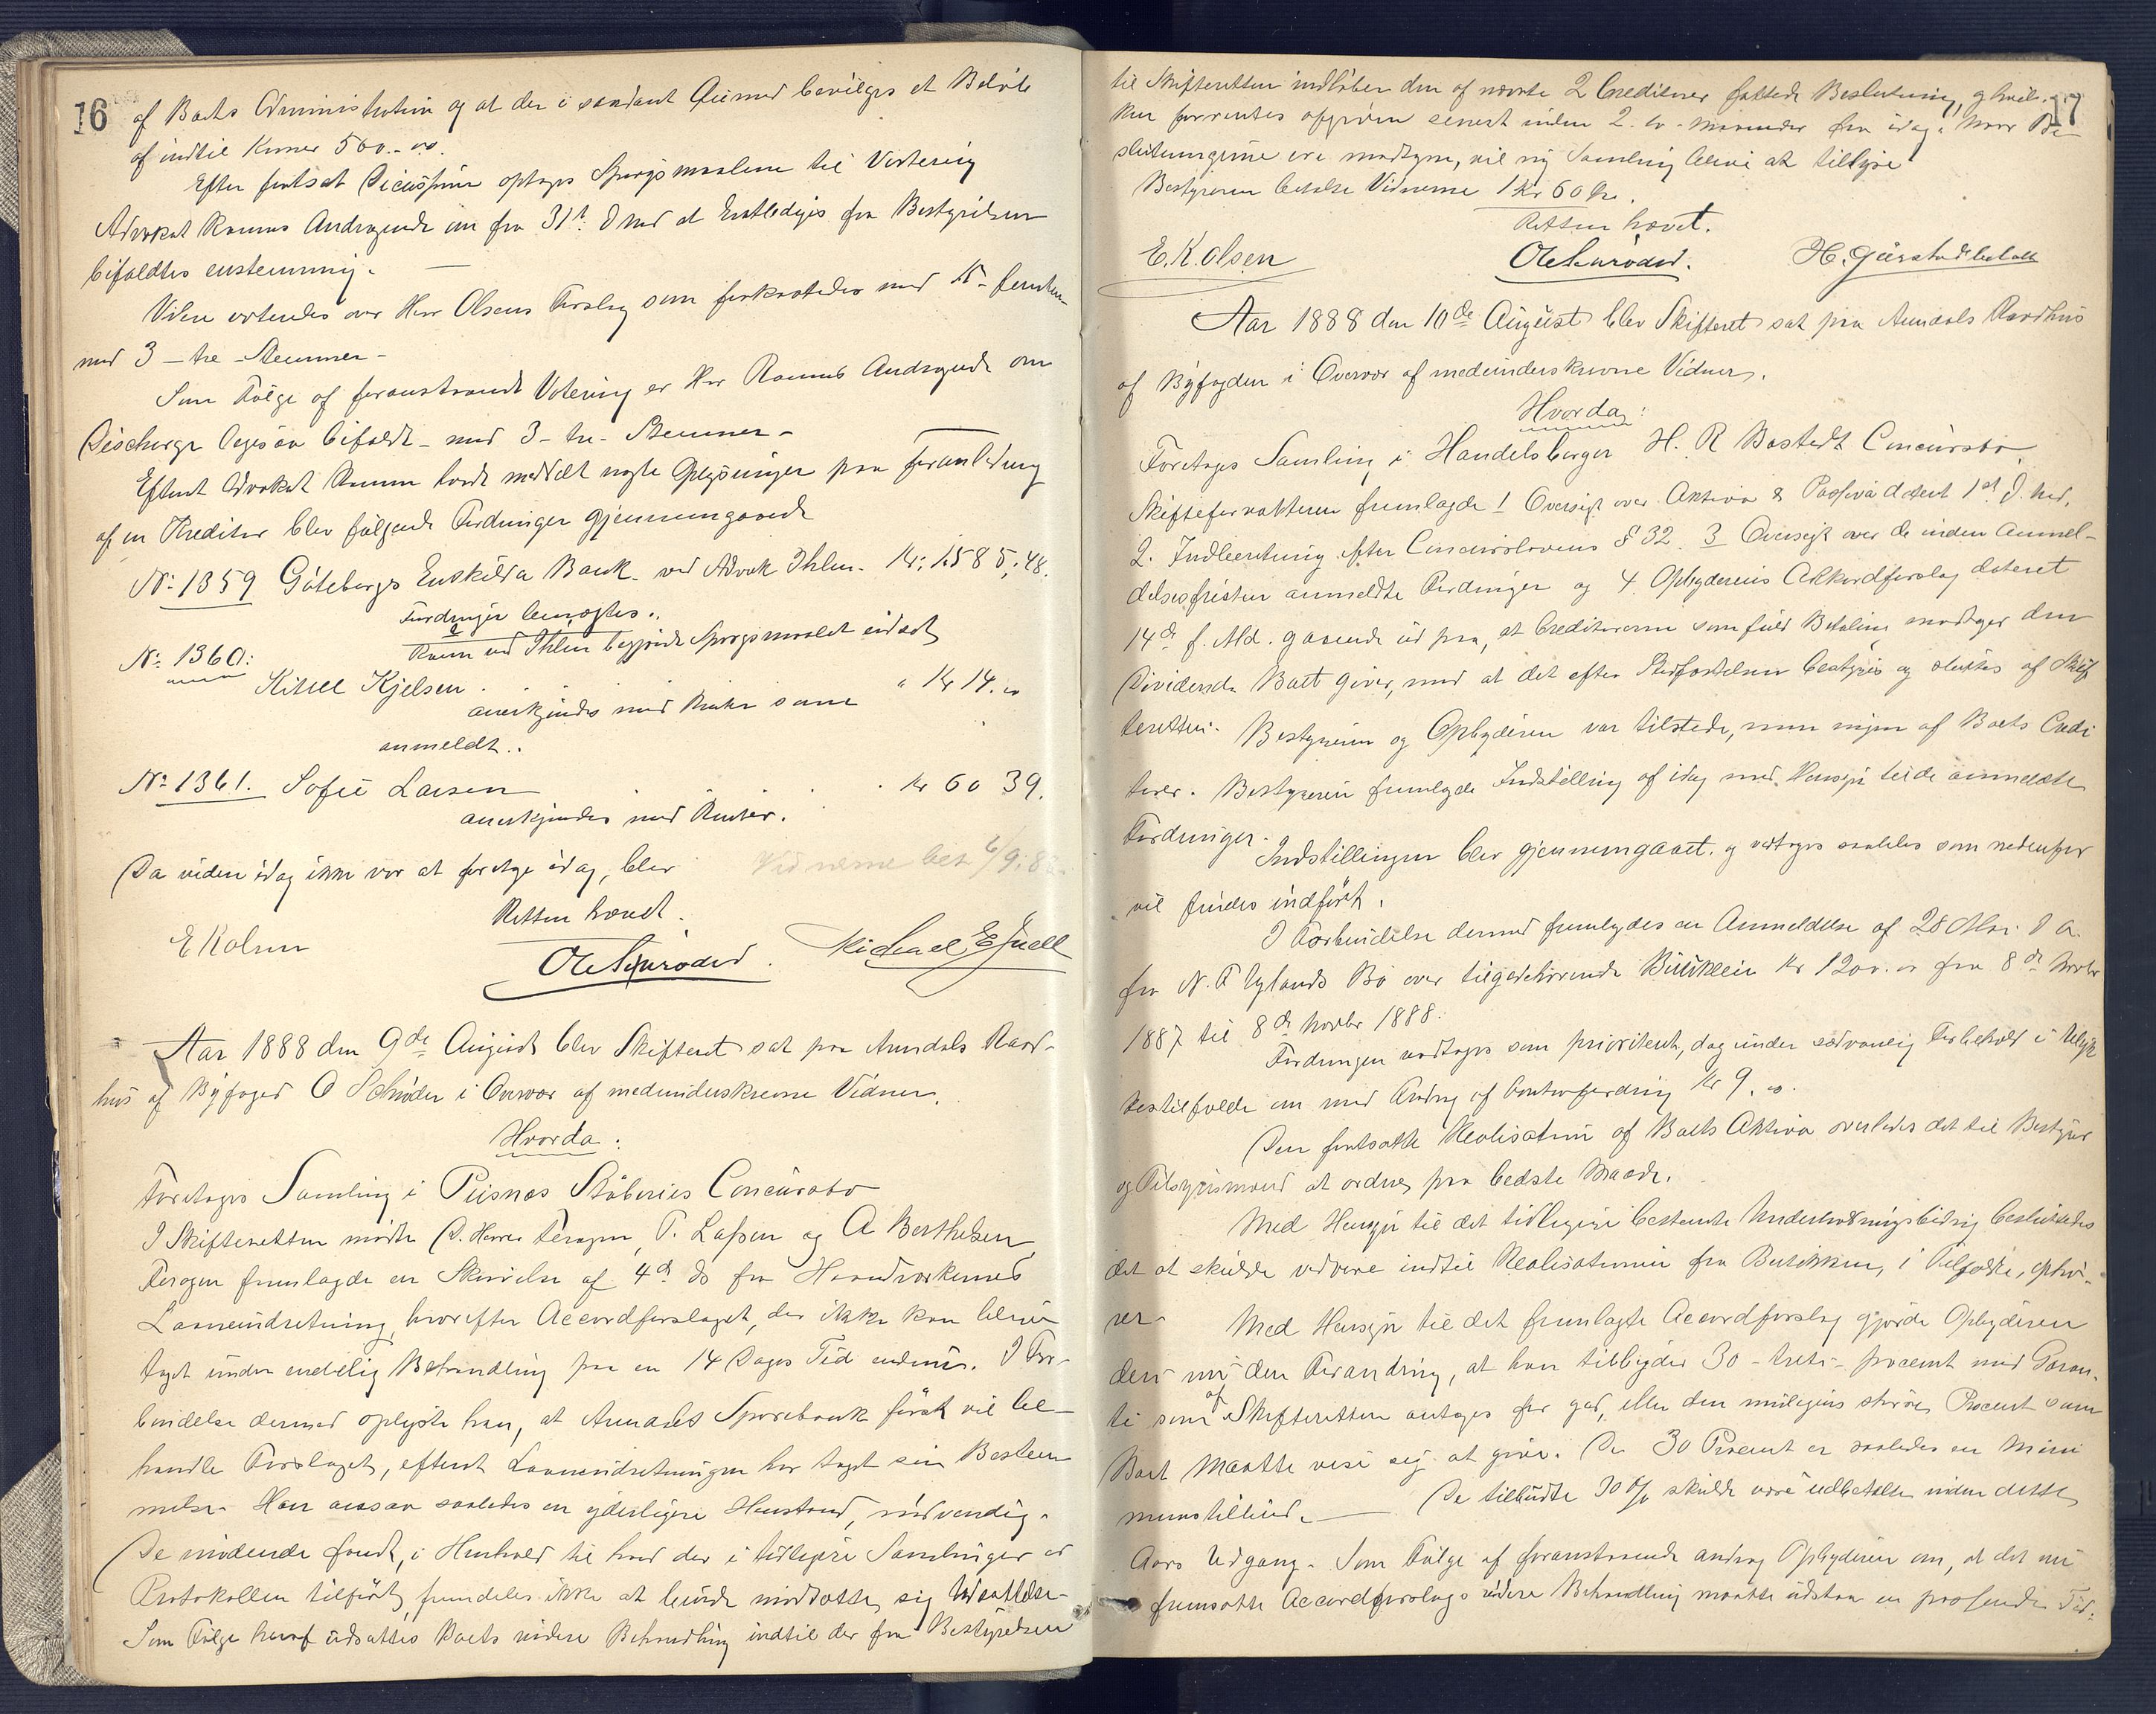 16
af Boets Administration og at der i saadant Øiemed bevilges et Beløb
af indtil Kroner 500.-oo.
Efter fortsat Discussion optoges Spørgsmaalene til Votering
Advokat Ramms Andragende om fra 31te d md at entlediges fra Bestyrelsen
bifaldtes enstemmig. —
Videre voteredes over Herr Olsens Forslag som forkastedes med 15 - femten -
mod 3 - tre - Stemmer -
Som Følge af foranstaaende Votering er Hr Ramms Andragende om
Discharge ligesaa bifaldt - mod 3 - tre - Stemmer -
Efterat Advokat Ramm havde meddelt nogle Oplysninger paa Foranledning
af en Kreditor blev følgende Fordringer gjennemgaaede
No 1359 Göteborgs Enskilda Bank ved Advok Ihlen - Kr. 1585,48.
Fordringen benægtes.
Ramm ved Ihlen begjærede Spørgsmaalet udsat
No 1360:
Kittel Kjelsen . " Kr 14. oo
anerkjendes med Renter som
anmeldt..
No 1361. Sofie Larsen . . . Kr 60 39.
anerkjendes med Renter.
Da videre idag ikke var at foretage idag, blev
Vidnerne bet 6/9.88.
Retten hævet.
E K Olsen
O Schrøder.
Michael E Snell
Aar 1888 den 9de August blev Skifteret sat paa Arendals Raad-
hus af Byfoged O Schrøder i Overvær af medunderskrevne Vidner.
Hvorda:
Foretoges Samling i Pusnæs Støberies Concursbo
I Skifteretten mødte D. Herrer Terogen, P. Lassen og A Berthelsen
Terogen fremlagde en Skrivelse af 4de ds fra Haandværkernes
Laaneindretning, hvorefter Accordforslaget, der ikke kan blive
taget under endelig Behandling paa en 14 Dages Tid endnu. I For-
bindelse dermed oplyste han, at Arendals Sparebank først vil be-
handle Forslaget, efterat Laaneindretningen har taget sin Bestem
melse. Han ansaa saaledes en yderligere Henstand, nødvendig.
De mødende fandt, i Henhold til hvad der i tidligere Samlinger er
Protokollen tilført, fremdeles ikke at burde modsætte sig Udsættelse-
Som Følge heraf udsattes Boets videre Behandling indtil der fra Bestyrelsen
17
til Skifteretten indløber den af nævnte 2 Creditorer fattede Beslutning, hvilken
kan forventes afgiven senest inden 2 - to - Maaneder fra idag. Naar Be-
slutningerne ere modtagne, vil ny Samling blive at tillyse
Bestyreren betalte Vidnerne 1 Kr 60 Øre.
Retten hævet.
E. K. Olsen
O Schrøder.
Aar 1888 den 10de August blev Skifteret sat paa Arendals Raadhus
af Byfogden i Overvær af medunderskrevne Vidner.
Hvorda:
Foretoges Samling i Handelsborger H. R Bastedt Concursbo.
Skifteforvalteren fremlagde 1 Oversigt over Aktiva & Passiva dateret 1st d. md.
2. Indberetning efter Concurslovens § 32. 3 Oversigt over de inden Anmel-
delsesfristen anmeldte Fordringer og 4. Opbyderens Akkordforslag dateret
14de f. Md. gaaende ud paa, at Creditorerne som fuld Betaling modtager den
Dividende Boet giver, mod at det efter Stadfæstelsen bestyres og sluttes af Skif
teretten. Bestyreren og Opbyderen var tilstede, men ingen af Boets Credi
torer. Bestyreren fremlagde Indstilling af idag med Hensyn til de anmeldte
Fordringer.
Indstillingen blev gjennemgaaet, og vedtoges saaledes som nedenfor
vil findes indført.
I Forbindelse dermed fremlagdes en Anmeldelse af 28 Mai d A.
fra N. F Uglands Bo over tilgodehavende Butikleie Kr 1200. oo fra 8de Novbr
1887 til 8de Novbr 1888.
Fordringen vedtoges som prioriteret, dog under sædvanlig Forbehold i Uligt
hestilfælde om med Fradrag af Contrafordring Kr 9. oo.
Den fortsatte Realisation af Boets Aktiva overlodes det til Bestyrer
og Tilsynsmænd at ordne paa bedste Maade.
Med Hensyn til det tidligere bestemte Underholdningsbidrag besluttedes
det at skulde vedvare indtil Realisationen fra Butikken, i Tilfælde, ophø-
rer -
Med Hensyn til det fremlagte Accordforslag gjorde Opbyderen
deri nu den Forandring, at han tilbyder 30 - treti - procent med Garan-
ti som af Skifteretten antages for god, eller den muligens større Procent som
Boet maatte vise sig at give. De 30 Procent er saaledes en Mini
mumstilbud. — De tilbudte 30 % skulde være udbetalte inden dette
Aars Udgang. Som Følge af foranstaaende androg Opbyderen om, at det nu
fremsatte Accordforslags videre Behandling maatte udstaa en passende Tid.